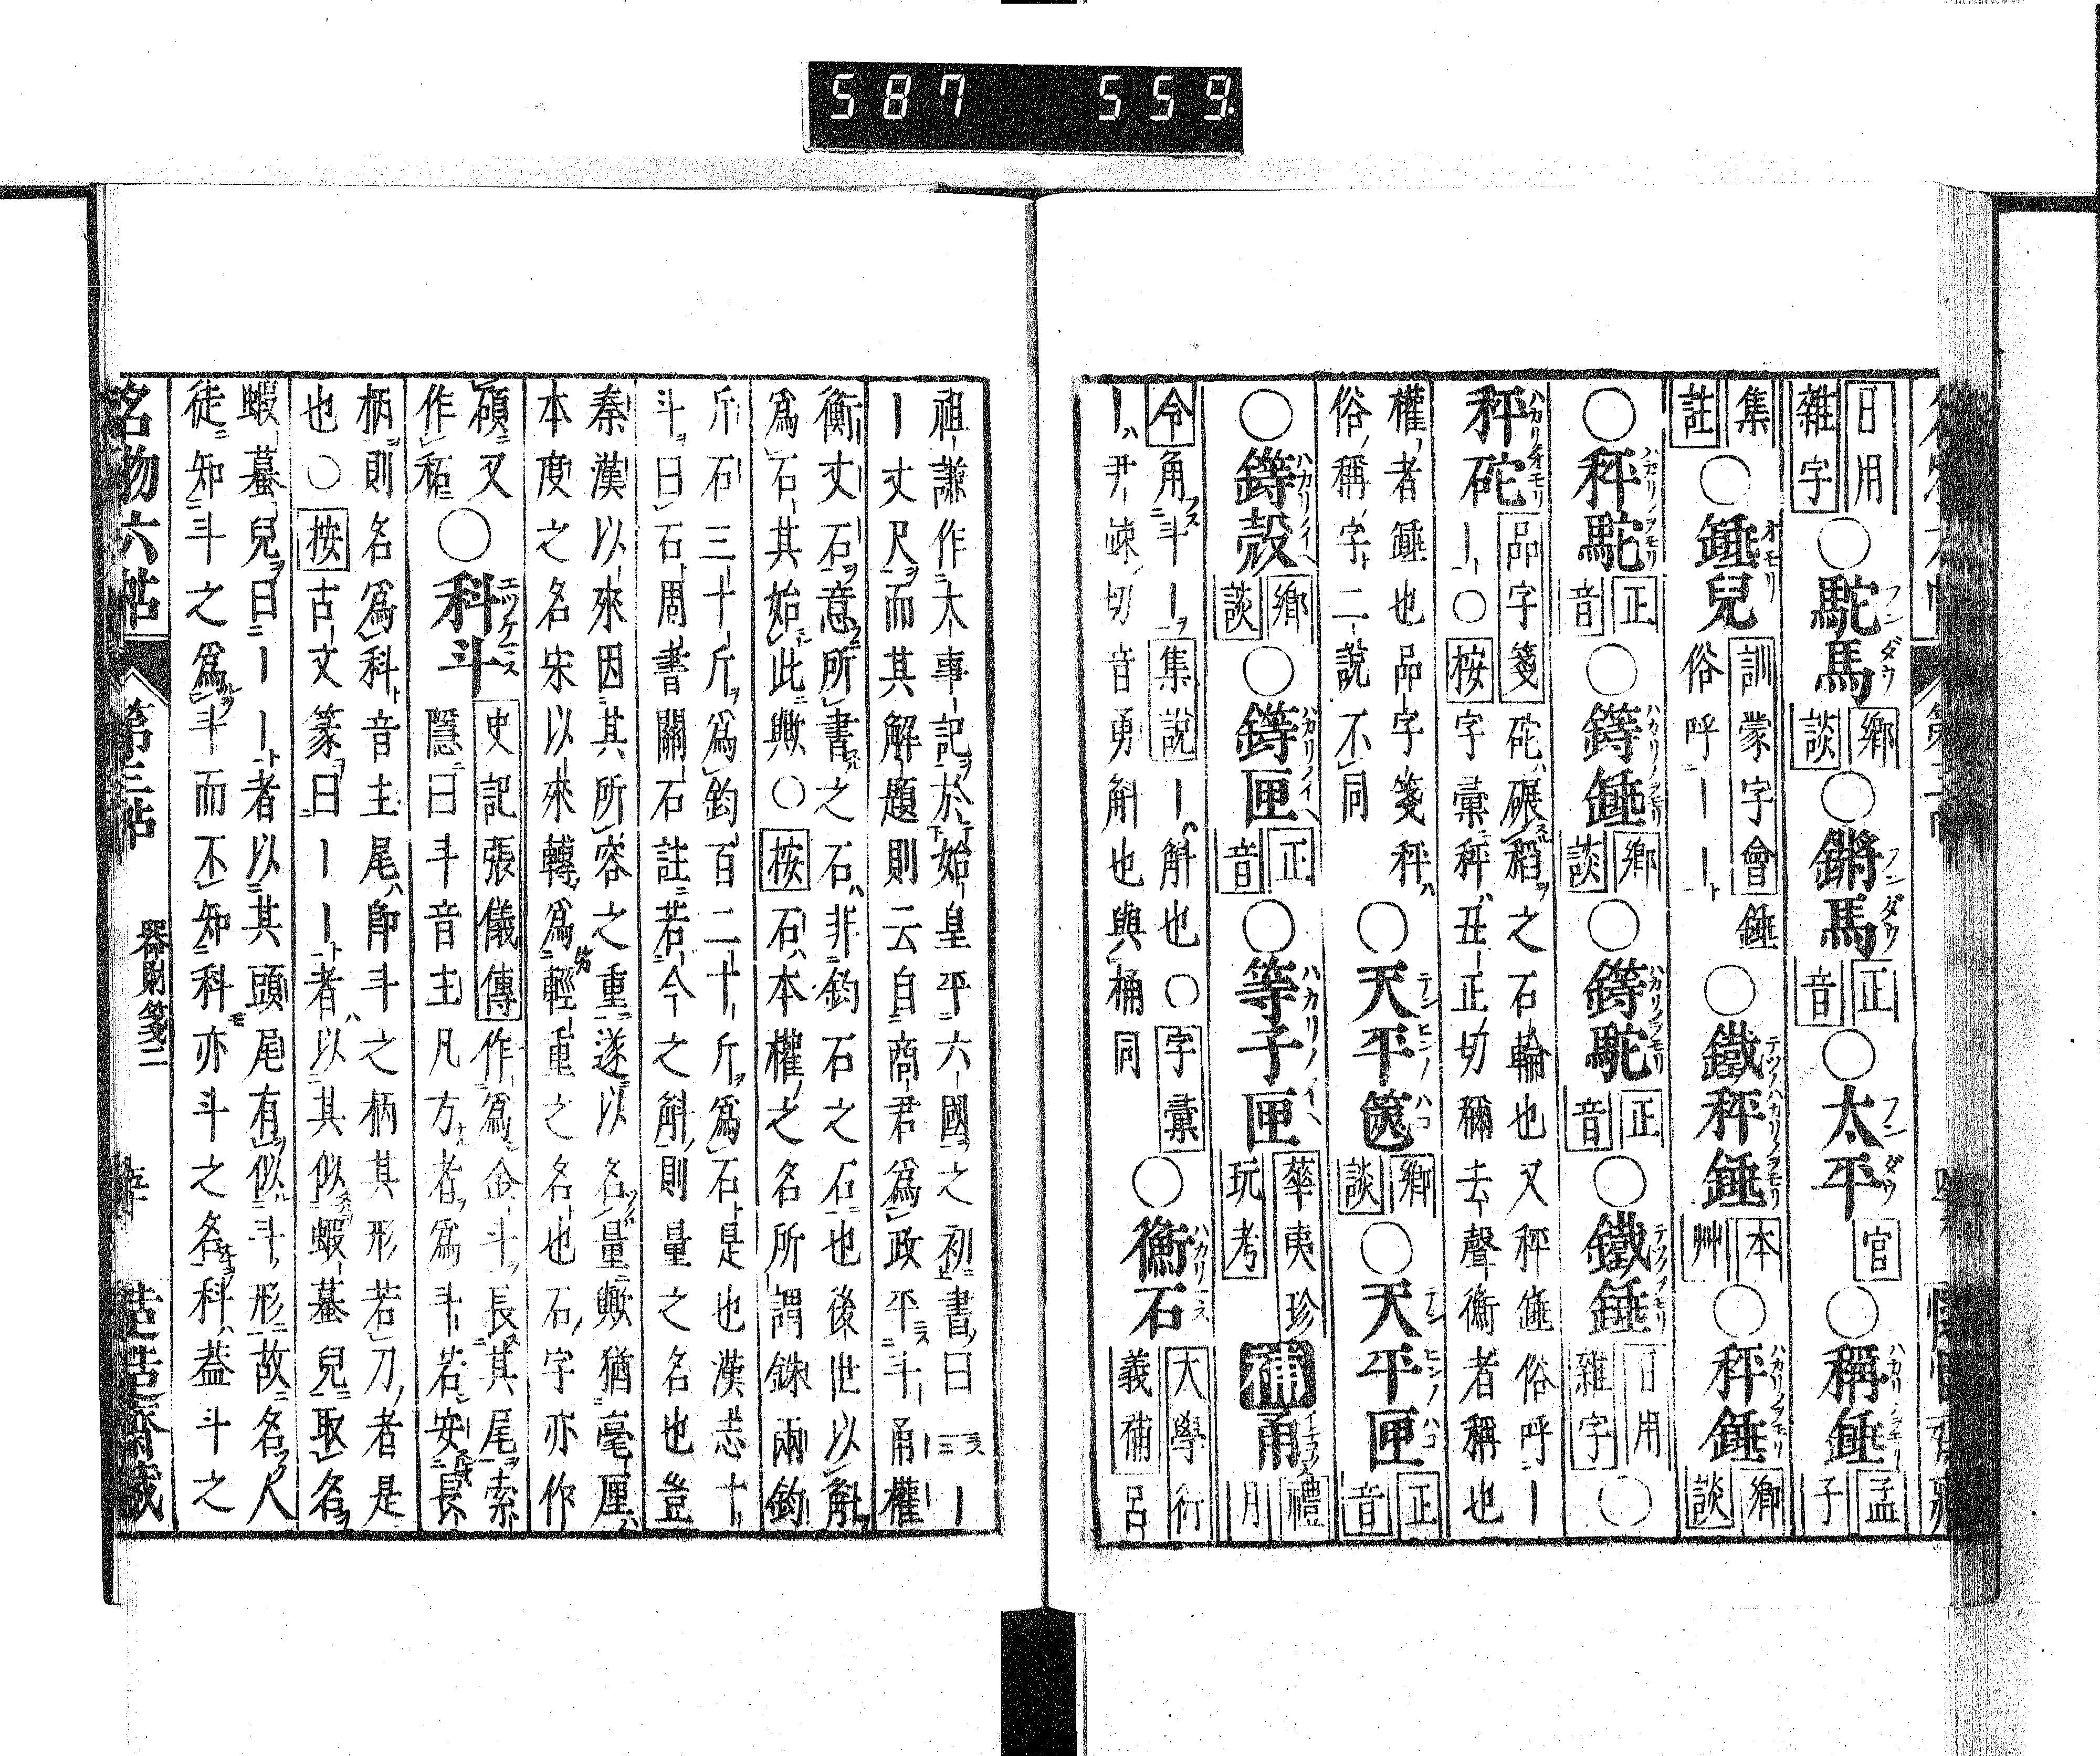 587 559
日用雜字○駝馬鄉談○鏘馬正音○太平官○稱錘孟子
集註○錘兒訓蒙字會錘俗呼丨丨○鐵秤錘本艸○秤錘鄉談
○秤駝正音○錘鄉談○駝正音○鐵錘日用雜字○
秤砣品字箋砣碾稻之石輪也又秤錘俗呼丨
丨○按字彙秤丑正切稱去聲衡者稱也
權者錘也品字箋秤
俗稱字二說不同○天平篋鄉談○天平匣正音
○殼鄉談○匣正音○等子匣華夷珍玩考補甬禮月
令角斗丨集說丨斛也○字彙
丨尹竦切音勇斛也與桶同○衡石大學衍義補呂
祖謙作大事記於始皇平六國之初書曰一丨
丨丈尺而其解題則云自商君爲政平斗甬權
衡丈石意所書之石非鈞石之石也後世以斛
爲石其始此歟○按石本權之名所謂銖兩鈞
斤石三十斤爲鈞百二十斤爲石是也漢志十
斗曰石周書關石註若今之斛則量之名也豈
秦漢以來因其所容之重遂以名量歟猶毫厘
本度之名宋以來轉爲輕重之名也石字亦作
碩又作䄷○科斗史記張儀傳作爲金斗長其尾索
隱曰斗音主凡方者爲斗若安長
柄則名爲科音主尾即斗之柄其形若刀者是
也○按古文篆曰丨丨者以其似蝦蟇兒取名
蝦蟇兒曰丨丨者以其頭尾有似斗形故名人
徒知斗之爲斗而不知科亦斗之名科蓋斗之
名物六帖 第三帖 器財箋二